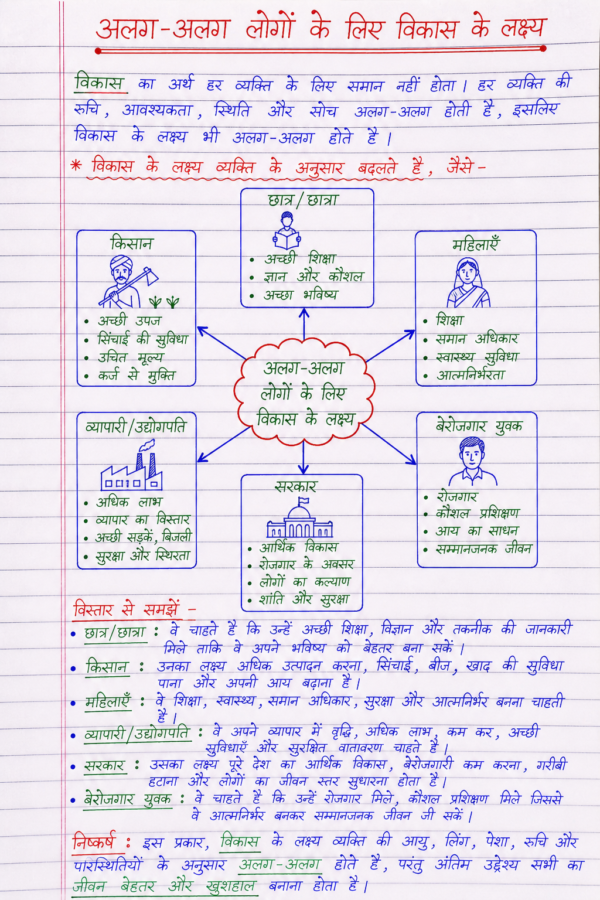 अलग-अलग लोगों के लिए विकास के लक्ष्य
विकास का अर्थ हर व्यक्ति के लिए समान नहीं होता। हर व्यक्ति की
रुचि, आवश्यकता, स्थिति और सोच अलग-अलग होती है, इसलिए
विकास के लक्ष्य भी अलग-अलग होते है।
* विकास के लक्ष्य व्यक्ति के अनुसार बदलते है, जैसे -
छात्र/छात्रा
• अच्छी शिक्षा
• ज्ञान और कौशल
• अच्छा भविष्य
किसान
• अच्छी उपज
• सिंचाई की सुविधा
• उचित मूल्य
• कर्ज से मुक्ति
महिलाएँ
• शिक्षा
• समान अधिकार
• स्वास्थ्य सुविधा
• आत्मनिर्भरता
अलग-अलग
लोगों के लिए
विकास के लक्ष्य
व्यापारी/उद्योगपति
• अधिक लाभ
• व्यापार का विस्तार
• अच्छी सड़कें, बिजली
• सुरक्षा और स्थिरता
सरकार
• आर्थिक विकास
• रोजगार के अवसर
• लोगों का कल्याण
• शांति और सुरक्षा
बेरोजगार युवक
• रोजगार
• कौशल प्रशिक्षण
• आय का साधन
• सम्मानजनक जीवन
विस्तार से समझें -
• छात्र/छात्रा : वे चाहते है कि उन्हें अच्छी शिक्षा, विज्ञान और तकनीक की जानकारी
मिले ताकि वे अपने भविष्य को बेहतर बना सकें।
• किसान : उनका लक्ष्य अधिक उत्पादन करना, सिंचाई, बीज, खाद की सुविधा
पाना और अपनी आय बढ़ाना है।
• महिलाएँ : वे शिक्षा, स्वास्थ्य, समान अधिकार, सुरक्षा और आत्मनिर्भर बनना चाहती
है।
• व्यापारी/उद्योगपति : वे अपने व्यापार में वृद्धि, अधिक लाभ, कम कर, अच्छी
सुविधाएँ और सुरक्षित वातावरण चाहते है।
• सरकार : उसका लक्ष्य पूरे देश का आर्थिक विकास, बेरोजगारी कम करना, गरीबी
हटाना और लोगों का जीवन स्तर सुधारना होता है।
• बेरोजगार युवक : वे चाहते है कि उन्हें रोजगार मिले, कौशल प्रशिक्षण मिले जिससे
वे आत्मनिर्भर बनकर सम्मानजनक जीवन जी सकें।
निष्कर्ष : इस प्रकार, विकास के लक्ष्य व्यक्ति की आयु, लिंग, पेशा, रुचि और
पारस्थितियों के अनुसार अलग-अलग होते है, परंतु अंतिम उद्देश्य सभी का
जीवन बेहतर और खुशहाल बनाना होता है।